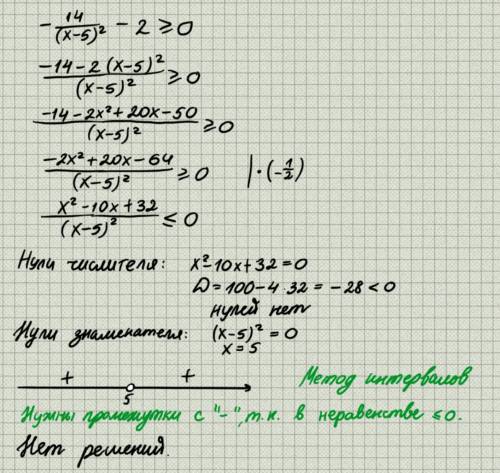 - 14/(x-5)² - 2 ≥ 0
(-14 - 2(x-5)²)/(x-5)² ≥ 0
(-14 - 2x² + 20x - 50)/(x-5)² ≥ 0
(-2x² + 20x - 64)/(x-5)² ≥ 0 | · (-1/2)
(x² - 10x + 32)/(x-5)² ≤ 0
Нули числителя: x² - 10x + 32 = 0
D = 100 - 4 · 32 = - 28 < 0
нулей нет
Нули знаменателя: (x-5)² = 0
x = 5
+ +
5
Метод интервалов
Нужны промежутки с "-", т.к. в неравенстве ≤ 0.
Нет решений.